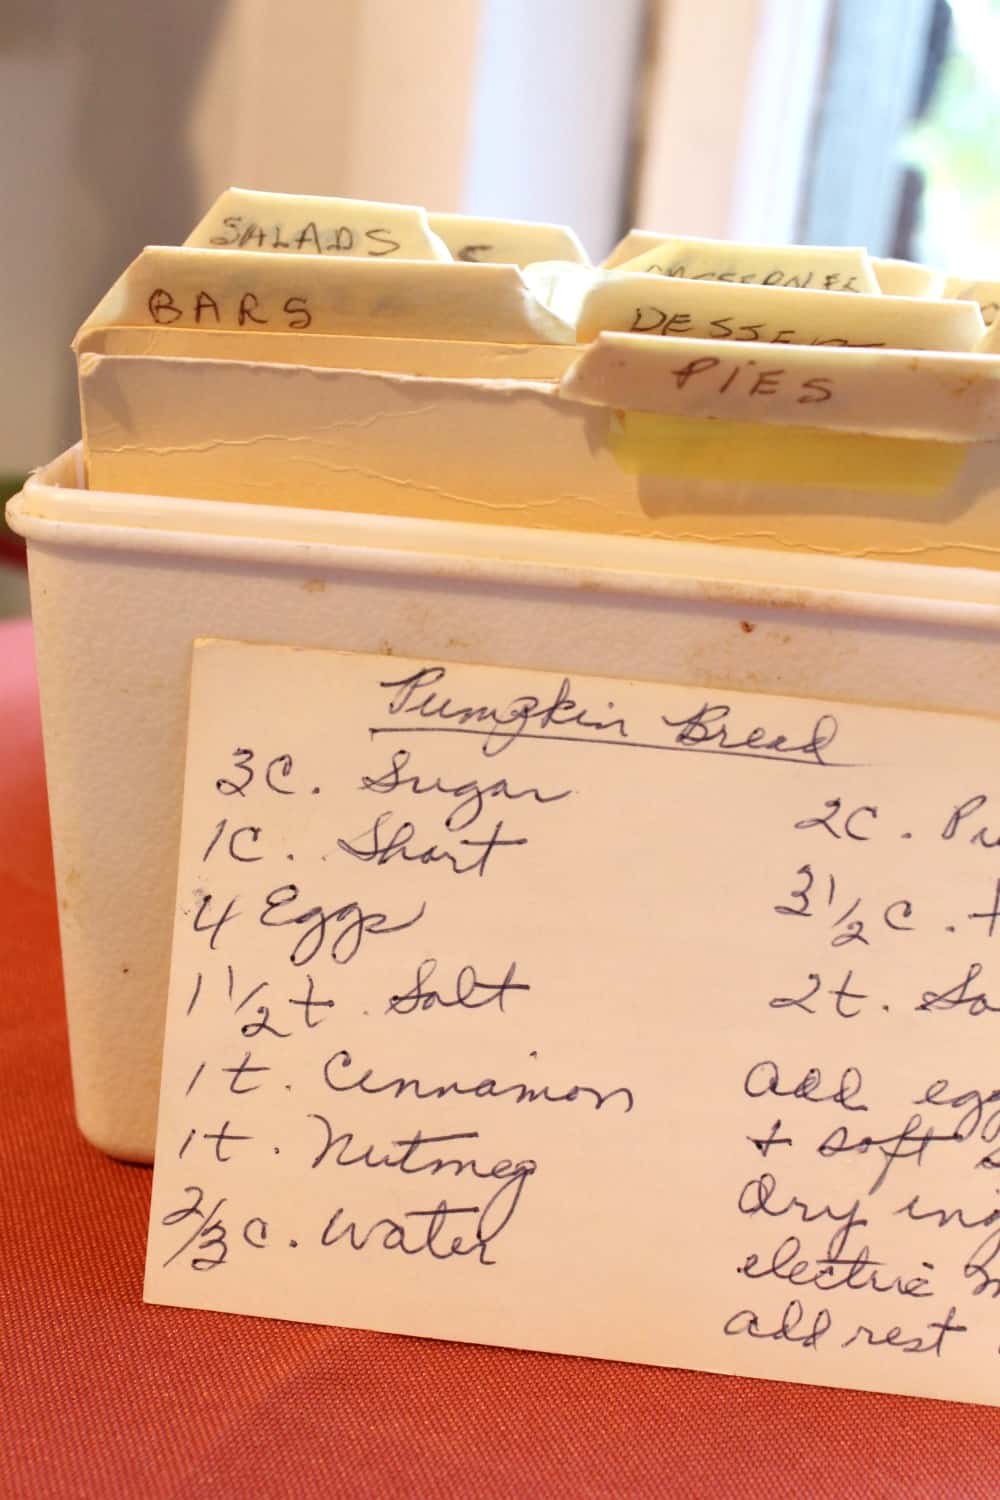 SALADS
BARS
PIES
Pumpkin Bread
3C. Sugar
1C. Short
4 Eggs
1 1/2 t. Salt
1t. Cinnamon
1t. Nutmeg
2/3 c. water
2C.
3 1/2 c.
2t.
add
+ soft
dry
electric
add rest